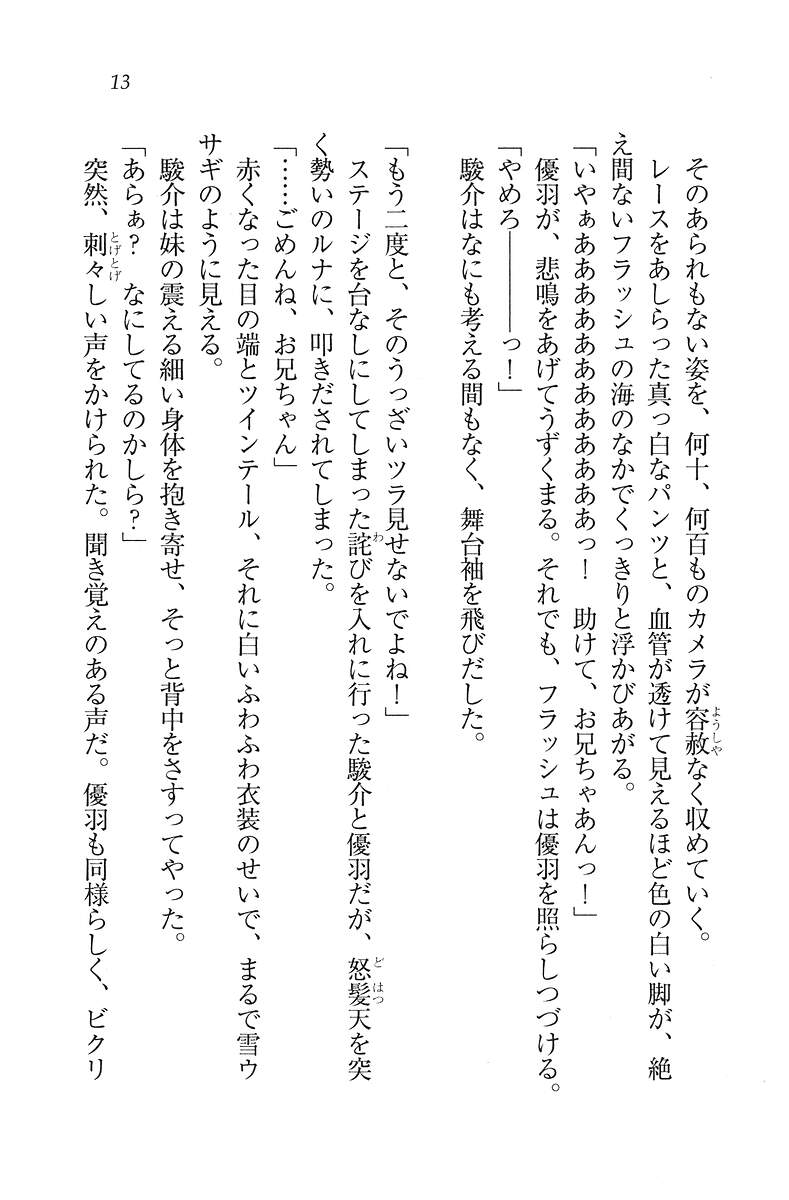 13
そのあられもない姿を、何十、何百ものカメラが容赦なく収めていく。
レースをあしらった真っ白なパンツと、血管が透けて見えるほど色の白い脚が、絶
え間ないフラッシュの海のなかでくっきりと浮かびあがる。
「いやぁあああああああああああっ！　助けて、お兄ちゃあんっ！」
優羽が、悲鳴をあげてうずくまる。それでも、フラッシュは優羽を照らしつづける。
「やめろ————っ！」
駿介はなにも考える間もなく、舞台袖を飛びだした。
「もう二度と、そのうっざいツラ見せないでよね！」
ステージを台なしにしてしまった詫びを入れに行った駿介と優羽だが、怒髪天を突
く勢いのルナに、叩きだされてしまった。
「……ごめんね、お兄ちゃん」
赤くなった目の端とツインテール、それに白いふわふわ衣装のせいで、まるで雪ウ
サギのように見える。
駿介は妹の震える細い身体を抱き寄せ、そっと背中をさすってやった。
「あらぁ？　なにしてるのかしら？」
突然、刺々しい声をかけられた。聞き覚えのある声だ。優羽も同様らしく、ビクリ